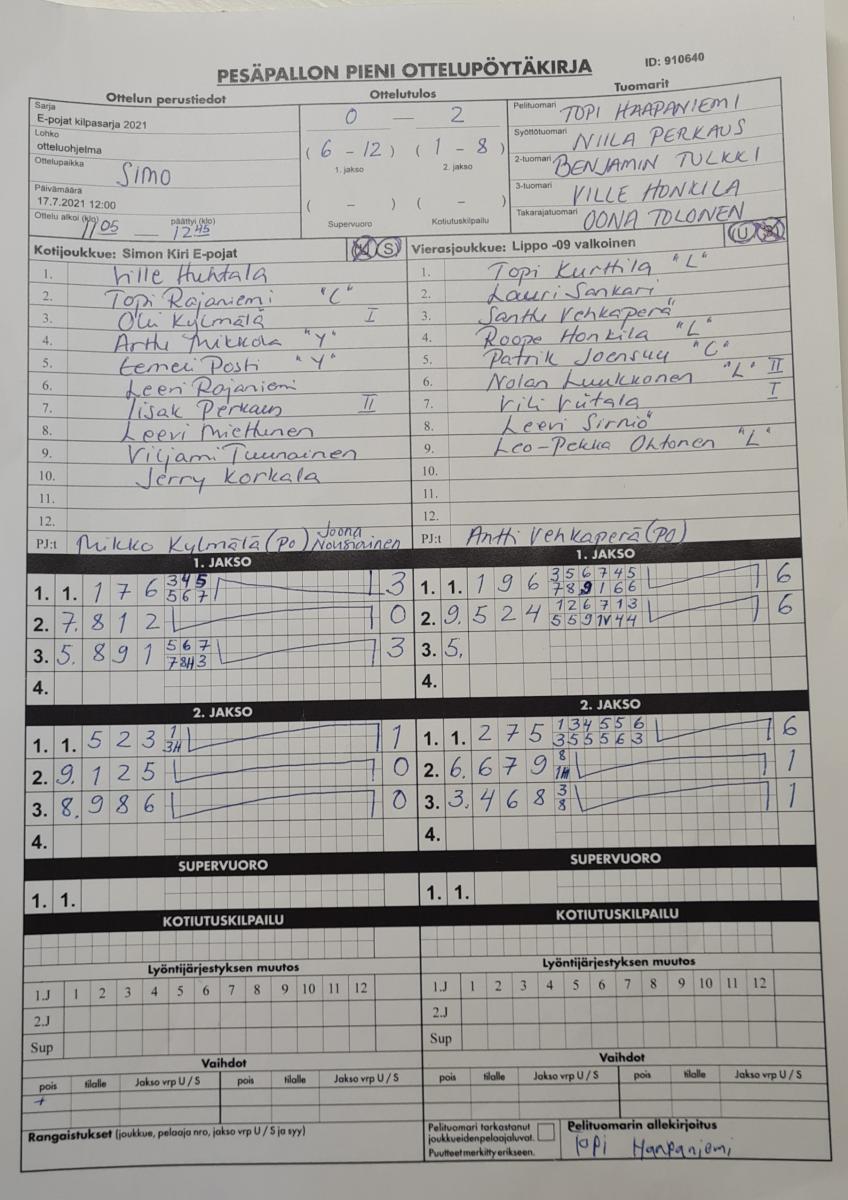 PESÄPALLON PIENI OTTELUPÖYTÄKIRJA
ID: 910640
Ottelun perustiedot
Sarja
E-pojat kilpasarja 2021
Lohko
otteluohjelma
Ottelupaikka SIMO
Päivämäärä
17.7.2021 12:00
Ottelu alkoi (klo) 1105 päättyi (klo) 1245
Ottelutulos
0 — 2
( 6 - 12 ) ( 1 - 8 )
1. jakso 2. jakso
( - ) ( - )
Supervuoro Kotiutuskilpailu
Tuomarit
Pelituomari TOPI HAAPANIEMI
Syöttötuomari NIILA PERKAUS
2-tuomari BENJAMIN TULKKI
3-tuomari VILLE HONKILA
Takarajatuomari OONA TOLONEN
Kotijoukkue: Simon Kiri E-pojat S
1. Ville Huhtala
2. Topi Rajaniemi "C"
3. Olli Kylmälä I
4. Arttu Mikkola "Y"
5. Eemeli Posti "Y"
6. Leevi Rajaniemi
7. Iisak Perkaus II
8. Leevi Miettunen
9. Viljami Tuunainen
10. Jerry Korkala
11.
12.
PJ:t Mikko Kylmälä (PO) Joona Nousiainen
Vierasjoukkue: Lippo -09 valkoinen U
1. Topi Kurttila "L"
2. Lauri Sankari
3. Santtu Vehkaperä
4. Roope Honkila "L"
5. Patrik Joensuu "C"
6. Nolan Luukkonen "L" II
7. Vili Viitala I
8. Leevi Sirniö
9. Leo-Pekka Ohtonen "L"
10.
11.
12.
PJ:t Antti Vehkaperä (PO)
1. JAKSO
1. 1. 1 7 6 3 4 5 3
5 6 7
2. 7. 8 1 2 0
3. 5. 8 9 1 5 6 7 3
7 8H 3
4.
2. JAKSO
1. 1. 5 2 3 1 1
3H
2. 9. 1 2 5 0
3. 8. 9 8 6 0
4.
SUPERVUORO
1. 1.
KOTIUTUSKILPAILU
Lyöntijärjestyksen muutos
1.J 1 2 3 4 5 6 7 8 9 10 11 12
2.J
Sup
Vaihdot
pois tilalle Jakso vrp U / S pois tilalle Jakso vrp U / S
Rangaistukset (joukkue, pelaaja nro, jakso vrp U / S ja syy)
1. JAKSO
1. 1. 1 9 6 3 5 6 7 4 5 6
7 8 9 1 6 6
2. 9. 5 2 4 1 2 6 7 1 3 6
5 5 9 1V 4 4
3. 5.
4.
2. JAKSO
1. 1. 2 7 5 1 3 4 5 5 6 6
3 5 5 5 6 3
2. 6. 6 7 9 8 1
1H
3. 3. 4 6 8 3 1
8
4.
SUPERVUORO
1. 1.
KOTIUTUSKILPAILU
Lyöntijärjestyksen muutos
1.J 1 2 3 4 5 6 7 8 9 10 11 12
2.J
Sup
Vaihdot
pois tilalle Jakso vrp U / S pois tilalle Jakso vrp U / S
Pelituomari tarkastanut
joukkueidenpelaajaluvat.
Puutteet merkitty erikseen.
Pelituomarin allekirjoitus
Topi Haapaniemi